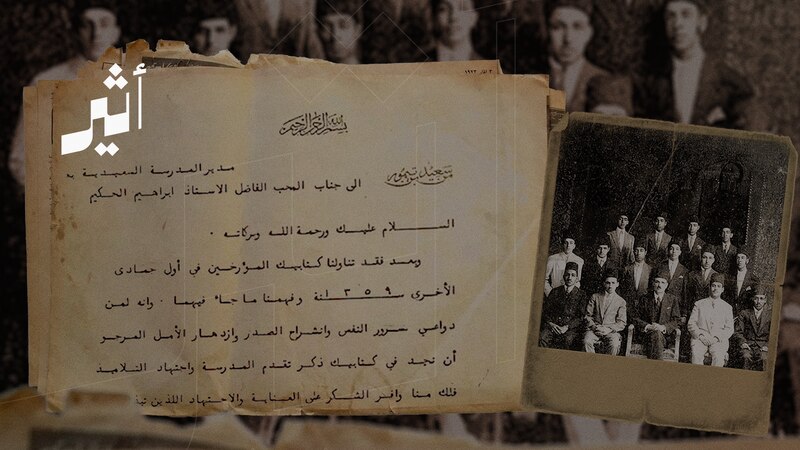 أثير
بسم الله الرحمن الرحيم
من سعيد بن تيمور
مدير المدرسة السعيدية
الى جناب المحب الفاضل الاستاذ ابراهيم الحكيم
الســـلام عليك ورحمة الله وبركاته .
وبعد فقد تناولنا كتابيك المؤرخين في أول جمادى
الأخرى ١٣٥٩ سنة وفهمنا ما جاء فيهما . وانه لمن
دواعي سرور النفس وانشراح الصدر وازدهار الأمل المرجو
أن نجد في كتابيك ذكر تقدم المدرسة واجتهاد التلاميذ
فلك منا وافر الشكر على العناية والاجتهاد اللذين